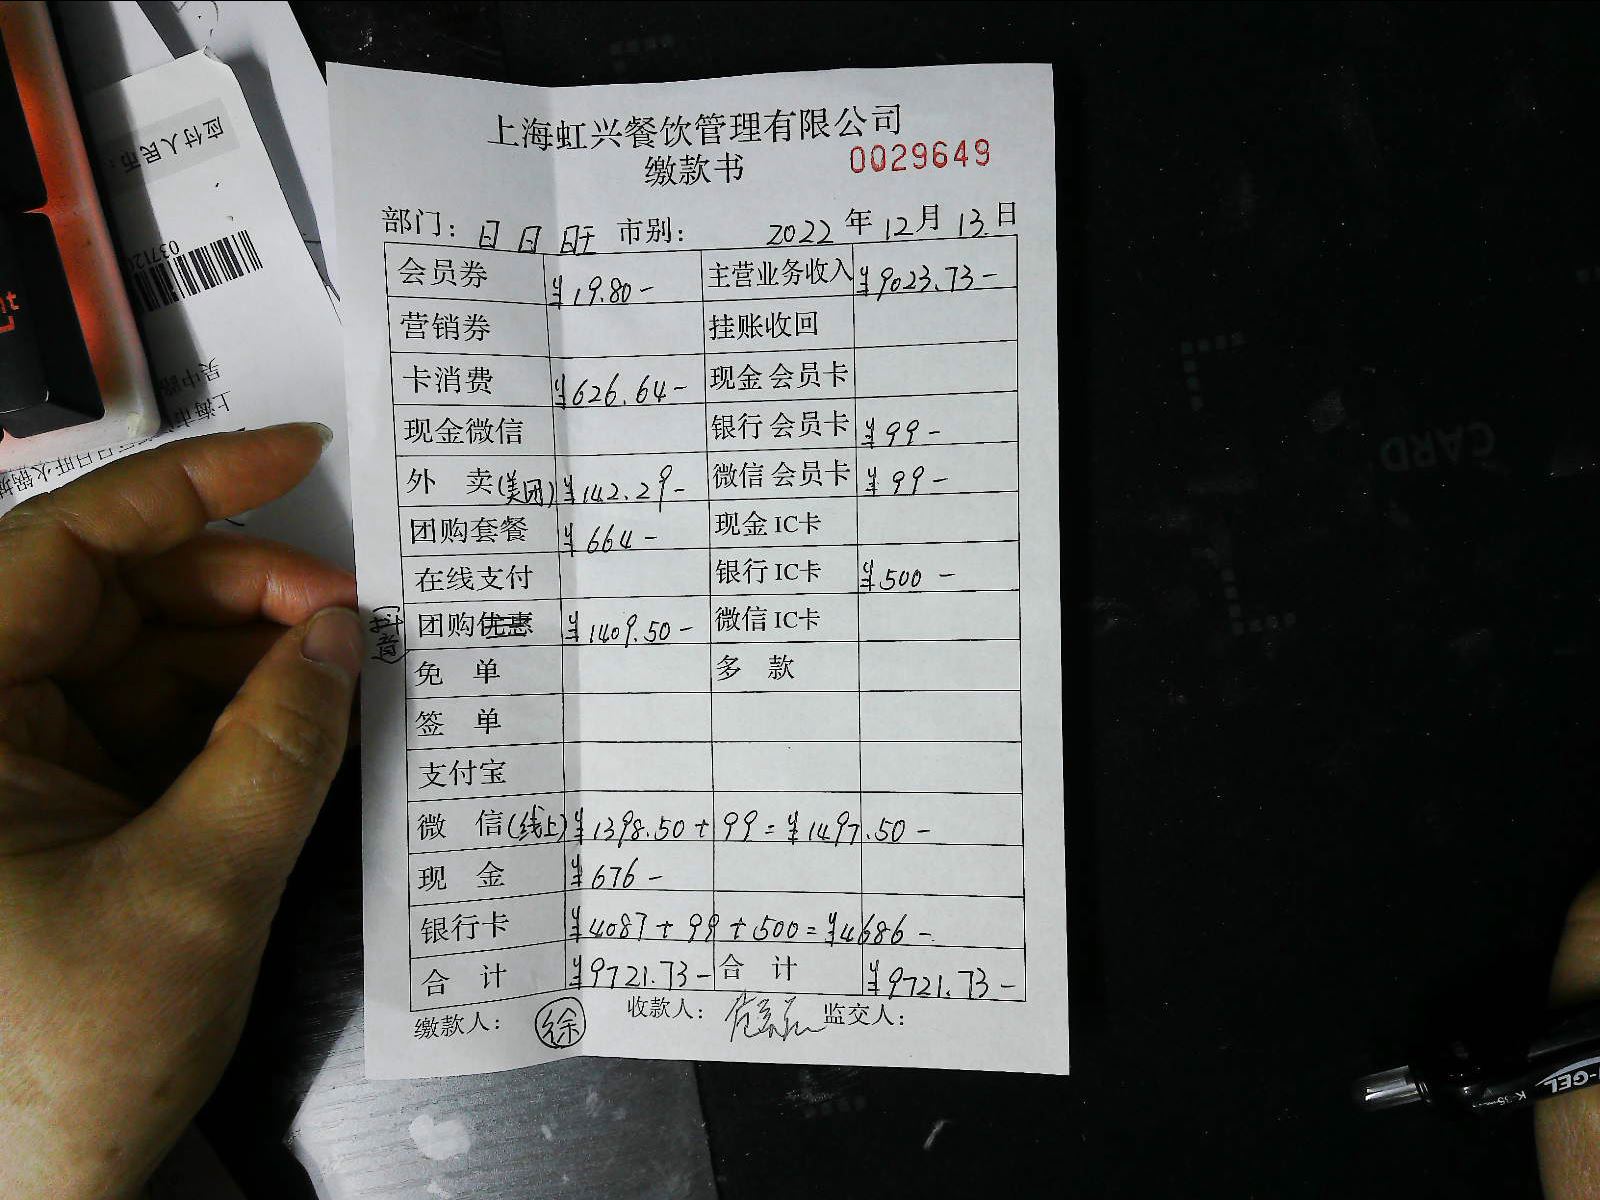 上海虹兴餐饮管理有限公司
缴款书 0029649
部门: 日 日 旺 市别: 2022 年 12 月 13 日
会员券 ¥19.80- 主营业务收入 ¥9023.73-
营销券 挂账收回
卡消费 ¥626.64- 现金 会员卡
现金微信 银行 会员卡 ¥99-
外 卖(美团) ¥142.29- 微信 会员卡 ¥99-
团购套餐 ¥664- 现金 IC卡
在线支付 银行 IC卡 ¥500-
(抖音) 团购优惠 ¥1409.50- 微信 IC卡
免 单 多 款
签 单
支付宝
微 信(线上) ¥1398.50+99=¥1497.50-
现 金 ¥676-
银行卡 ¥4087+99+500=¥4686-
合 计 ¥9721.73- 合 计 ¥9721.73-
缴款人: 徐 收款人: 监交人:
应付人民币:
CARD